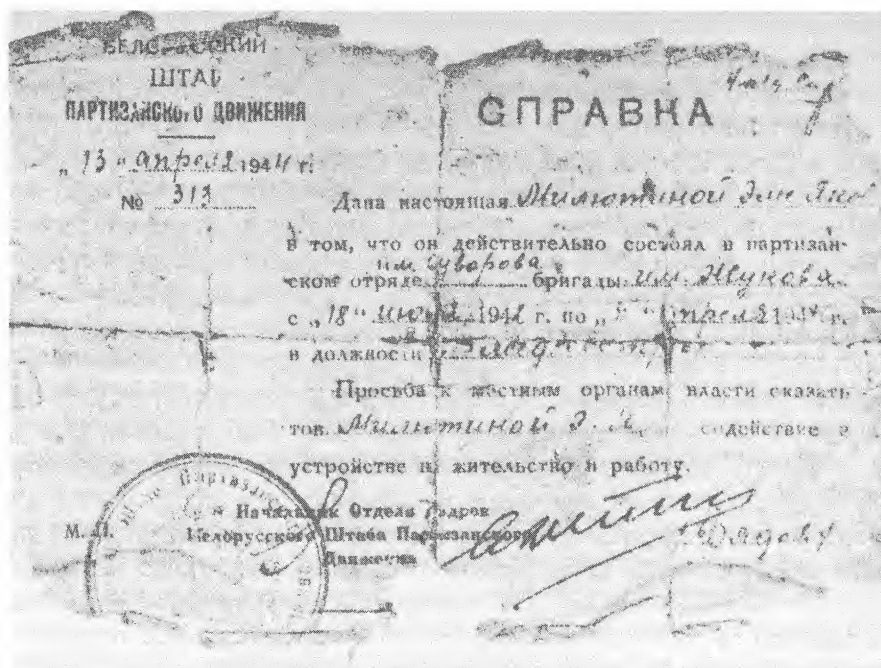 БЕЛОРУССКИЙ
ШТАБ
ПАРТИЗАНСКОГО ДВИЖЕНИЯ
„13“ апреля 1944 г.
№ 313
СПРАВКА
Дана настоящая Милютиной
в том, что он действительно состоял в партизан-
ском отряде им. Суворова бригады им. Жукова
с „18“ 1942 г. по апреля 1944 г.
в должности
Просьба к местным органам власти оказать
тов. Милютиной Э. Я. содействие в
устройстве на жительство и работу.
М. П.
Начальник Отдела Кадров
Белорусского Штаба Партизанского
Движения